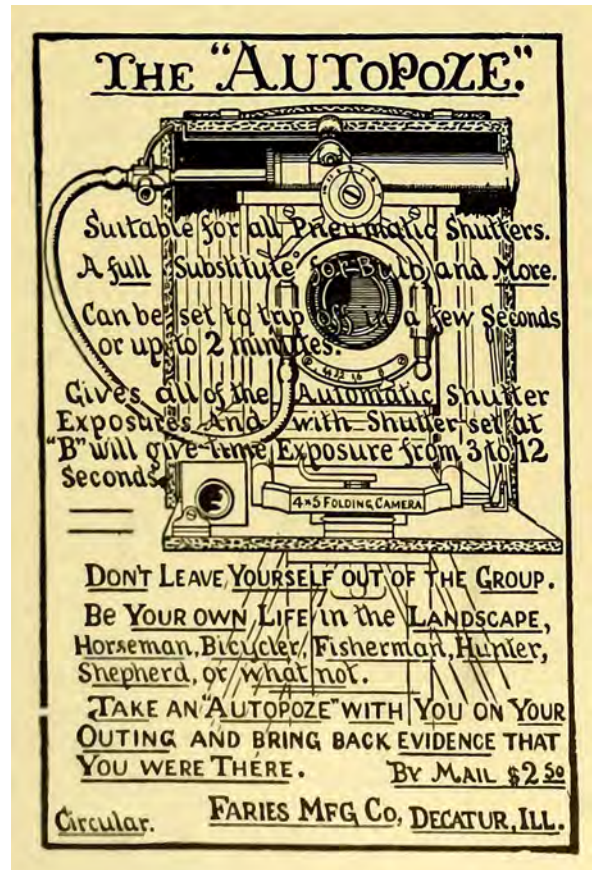 THE "AUTOPOZE."
Suitable for all Pneumatic Shutters.
A full Substitute for Bulb and More.
Can be set to trip off in a few Seconds
or up to 2 minutes.
Gives all of the Automatic Shutter
Exposures And with Shutter set at
"B" will give time Exposure from 3 to 12
Seconds.
4×5 FOLDING CAMERA
DON'T LEAVE YOURSELF OUT OF THE GROUP.
Be YOUR OWN LIFE in the LANDSCAPE,
Horseman, Bicycler, Fisherman, Hunter,
Shepherd, or what not.
TAKE AN "AUTOPOZE" WITH YOU ON YOUR
OUTING AND BRING BACK EVIDENCE THAT
YOU WERE THERE. BY MAIL $2 50
Circular. FARIES MFG CO, DECATUR, ILL.